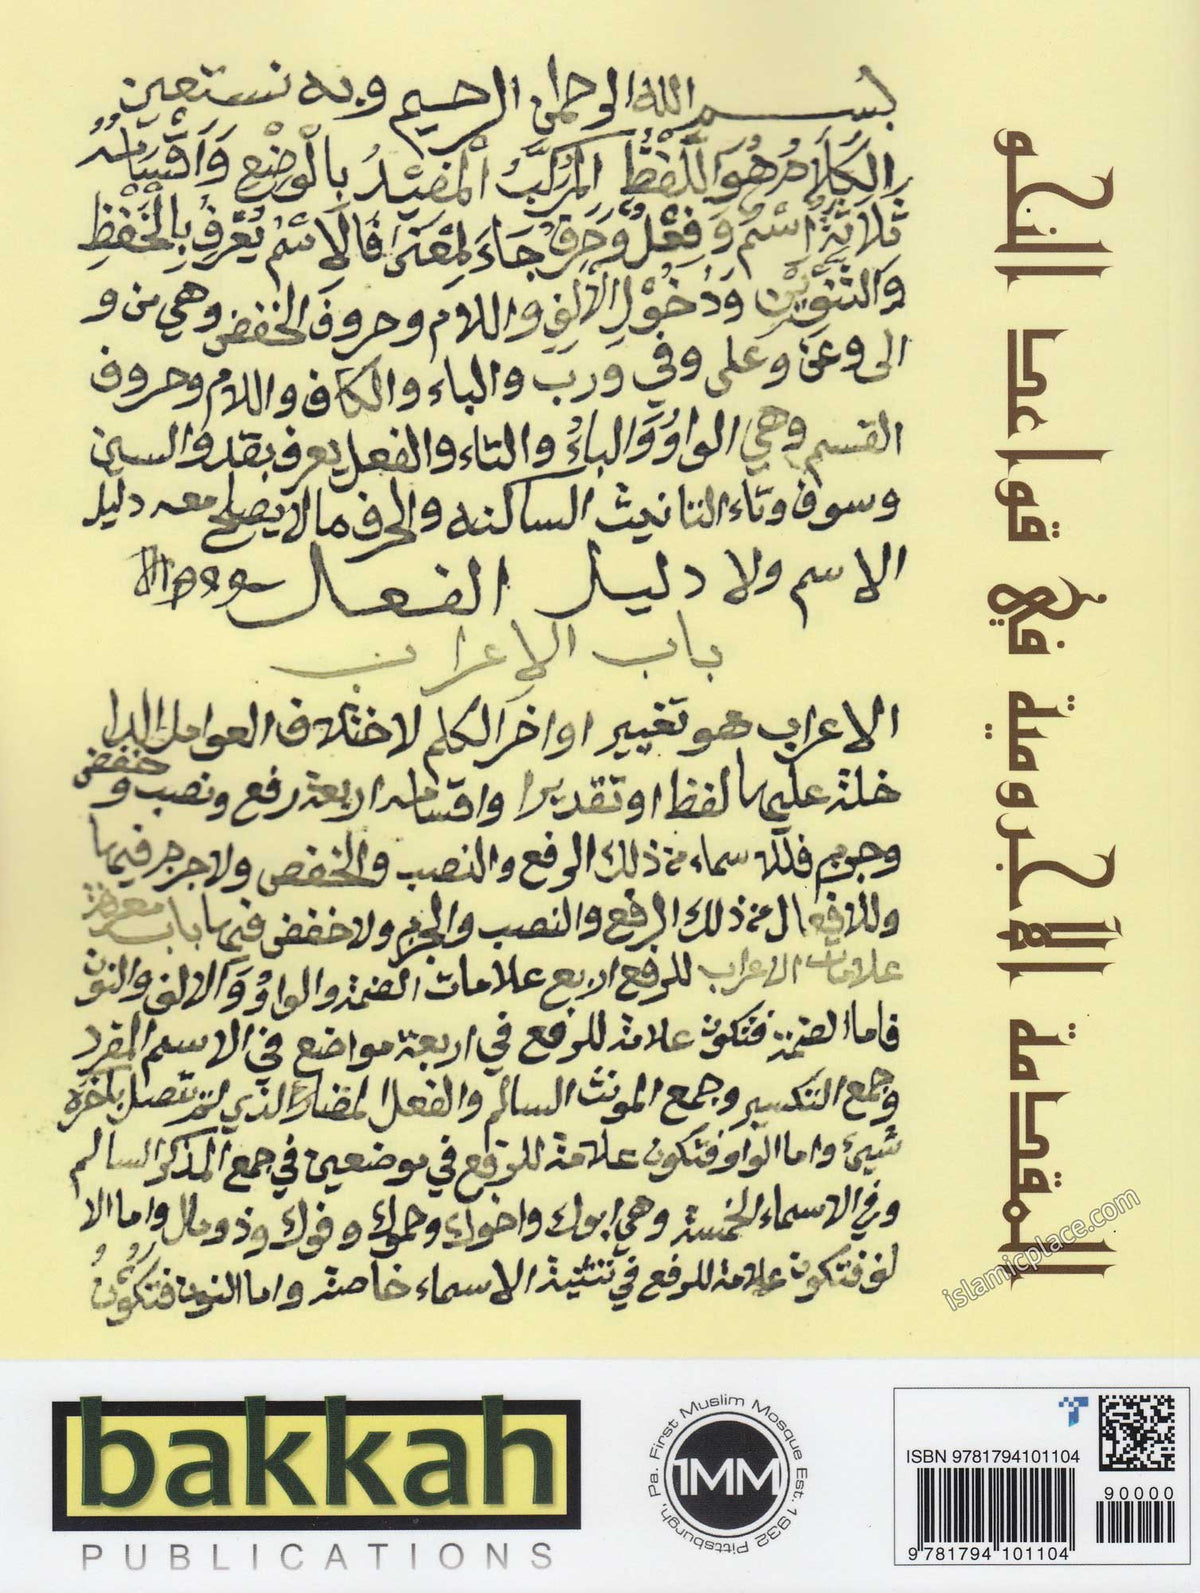 بسم الله الرحمان الرحيم وبه نستعين
الكَلَامُ هُوَ اللَّفْظُ المُرَكَّبُ الْمُفِيْدُ بِالْوَضْعِ وَاَقْسَامُه
ثَلَاثَةٌ اِسْمٌ وَفِعْلٌ وَحَرْفٌ جَاءَ لِمَعْنَى فَالاِسْمُ يُعْرَفُ بِالْخَفْظِ
وَالتَّنْوِيْنِ وَدُخُوْلِ الْاَلِفِ واللام وحروف الخفض وهي من و
الى وعن وعلى وفي ورب والباء والكاف واللام وحروف
القسم وهي الواوُ وَالباءُ والتاء والفعل يعرف بقد والسين
وسوف وتاء التانيث الساكنة والحرف مالا يصلح معه دليل
الاسم ولا دليل الفعل
باب الإعراب
الاعراب هو تغيير اواخر الكلم لاختلاف العوامل الدا
خلة عليها لفظا او تقديرا واقسامه اربعة رفع ونصب و خفض
وجزم فللاسماء من ذلك الرفع والنصب والخفض ولا جزم فيها
وللافعال من ذلك الرفع والنصب والجزم ولا خفض فيها باب معرفة
علامات الاعراب للرفع اربع علامات الضمة والواوُ وَالالف والنون
فاما الضمة فتكون علامة للرفع في اربعة مواضع في الاسم المفرد
وجمع التكسير وجمع المونث السالم والفعل المضارع الذي لم يتصل بآخره
شيئ واما الواو فتكون علامة للرفع في موضعين في جمع المذكر السالم
وفي الاسماء الخمسة وهي ابوك واخوك وحموك وفوك وذو مال واما الا
لف فتكون علامة للرفع في تثنية الاسماء خاصة واما النون فتكُونُ
المقدمة الأجرومية في قواعد النحو
islamicplace.com
bakkah
PUBLICATIONS
Pa. First Muslim Mosque Est. 1932 Pittsburgh,
1MM
ISBN 9781794101104
90000
9 781794 101104